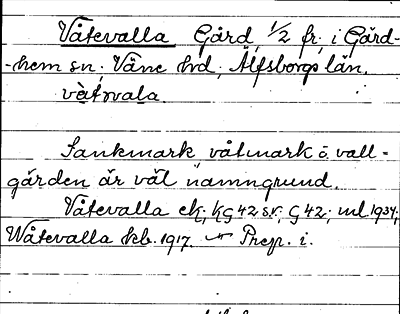 Våtevalla Gård, 1/2 fr, i Gård-
-hem sn; Väne hd, Älfsborgs län.
våtvala.
Sankmark, våtmark o. vall-
gärden är väl namngrund.
Våtevalla ek; kG 42 sv; G 42; ml 1934;
Wåtevalla kb. 1917. Prep. i.